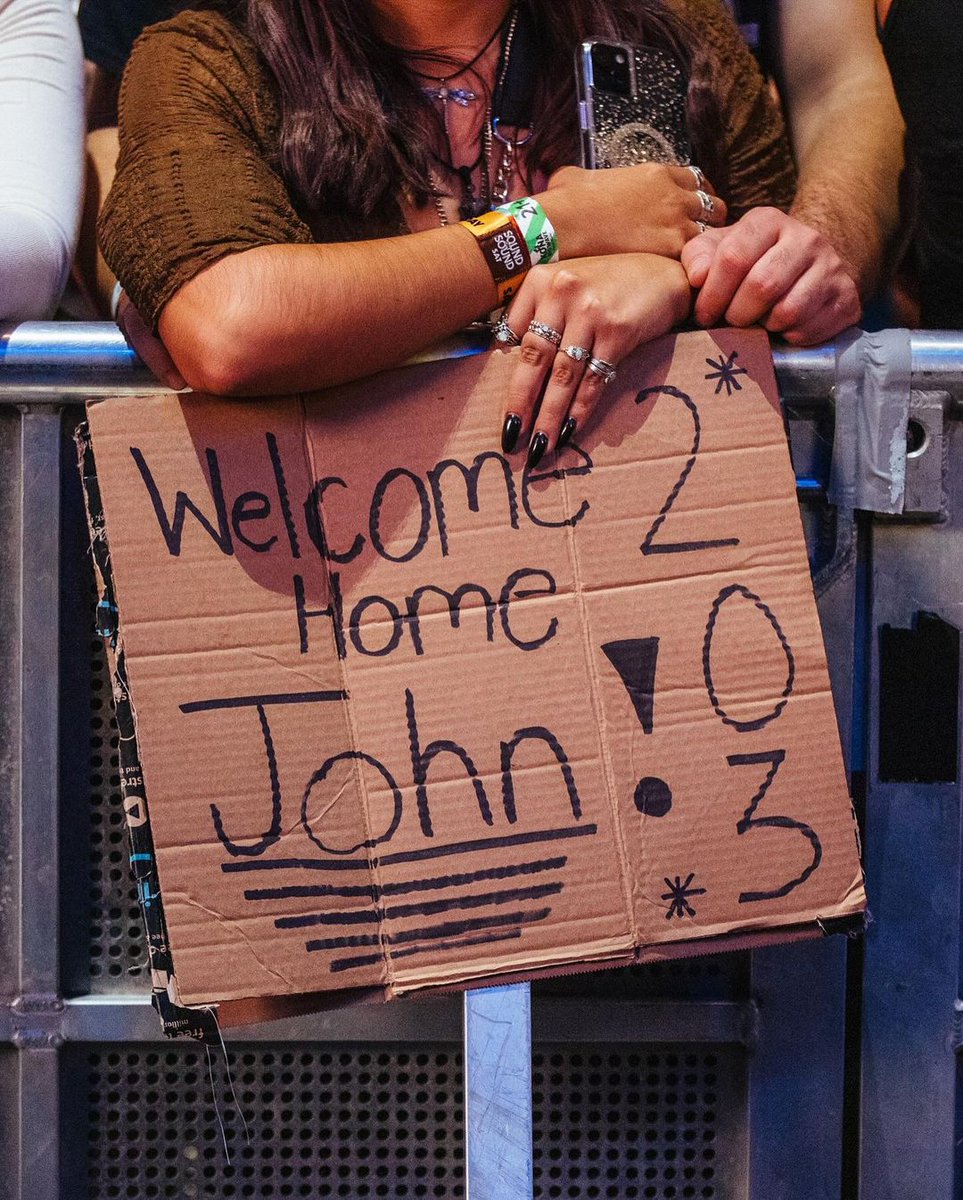 Welcome
Home
John!
*203*
SOUND
ON
SOUND
SAT
free